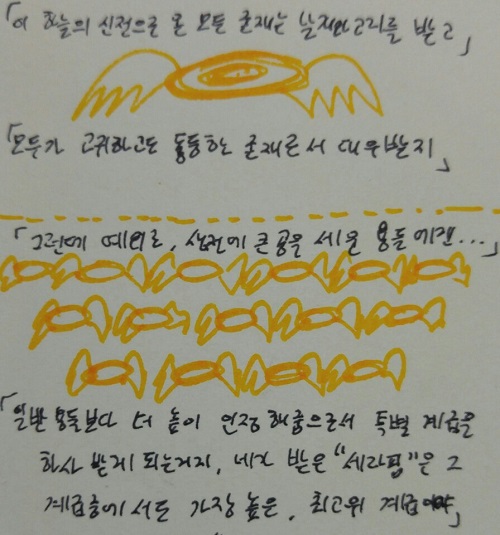 「이 하늘의 신전으로 온 모든 존재는 날개와 고리를 받고」
「모두가 고귀하고도 동등한 존재로서 대우받지」
「그런데 예외로, 생전에 큰 공을 세운 용들에겐...」
「일반 용들보다 더 높이 인정해줌으로서 특별 계급을
하사 받게 되는거지, 네가 받은 "세라핌"은 그
계급중에서도 가장 높은, 최고위 계급이야」